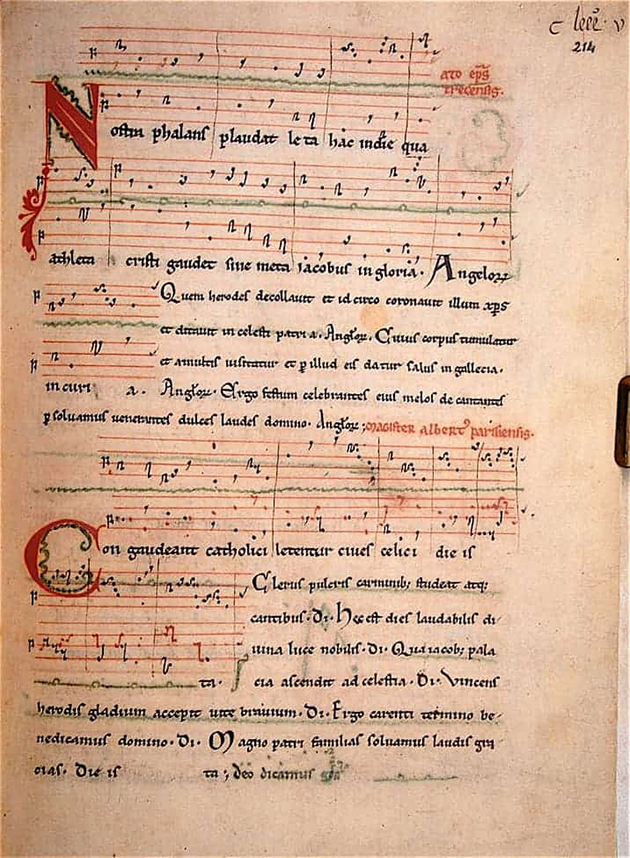 214
ato ep̄s
trecensis.
Nostra phalans plaudat leta hac in die qua
athleta cristi gaudet sine meta iacobus in gloria. Angelorꝝ
Quem herodes decollauit et id circo coronauit illum xp̄s
et ditauit in celesti patria. Angl̄orꝝ. Cuius corpus tumulatur
et a multis uisitatur et ꝑ illud eis datur salus in gallecia.
in curi a. Angl̄orꝝ. Ergo festum celebrantes eius melos decantantes
ꝑsoluamus uenerantes dulces laudes domino. Angl̄orꝝ;
magister albertꝰ parisiensis.
Con gaudeant catholici letentur ciues celici die is
Clerus pulcris carminibꝫ studeat atqꝫ
cantibus. Di. Hec est dies laudabilis di
uina luce nobilis. Di. Qua iacobꝫ pala
ta. cia ascendit ad celestia. Di. Vincens
herodis gladium accepit uite brauium. Di. Ergo carenti termino be
nedicamus domino. Di. Magno patri familias soluamus laudis gra
cias. Die is ta; deo dicamus